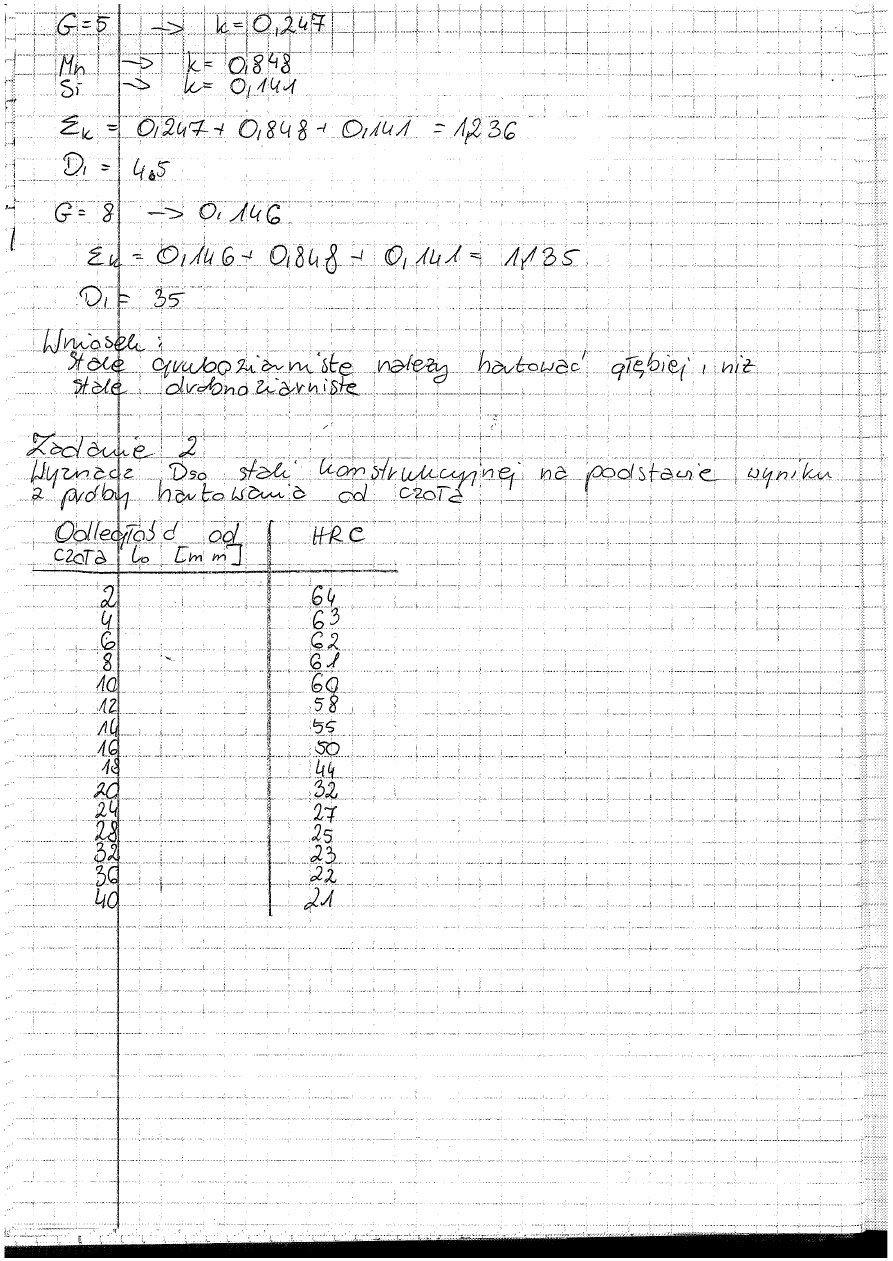 G = 5 → k = 0,247
Mn → k = 0,848
Si → k = 0,141
Σk = 0,247 + 0,848 + 0,141 = 1,236
Di = 45
G = 8 → 0,146
Σk = 0,146 + 0,848 + 0,141 = 1,135
Di = 35
Wniosek :
Stale gruboziarniste należy hartować głębiej, niż
stale drobnoziarniste
Zadanie 2
Wyznacz D50 stali konstrukcyjnej na podstawie wyniku
z próby hartowania od czoła
Odległość od HRC
czoła lo [mm]
2 64
4 63
6 62
8 61
10 60
12 58
14 55
16 50
18 44
20 32
24 27
28 25
32 23
36 22
40 21